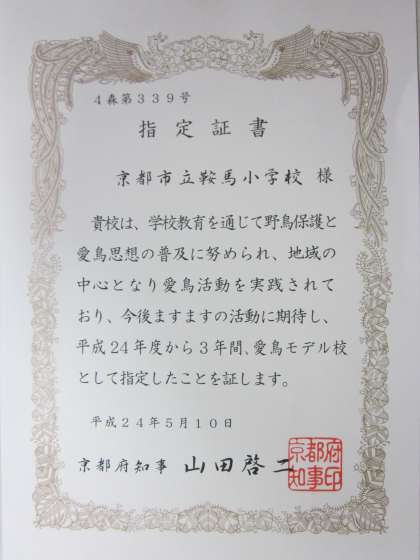 ４森第３３９号
指定証書
京都市立鞍馬小学校 様
貴校は、学校教育を通じて野鳥保護と
愛鳥思想の普及に努められ、地域の
中心となり愛鳥活動を実践されて
おり、今後ますますの活動に期待し、
平成２４年度から３年間、愛鳥モデル校
として指定したことを証します。
平成２４年５月１０日
京都府知事 山田啓二
京都府知事印